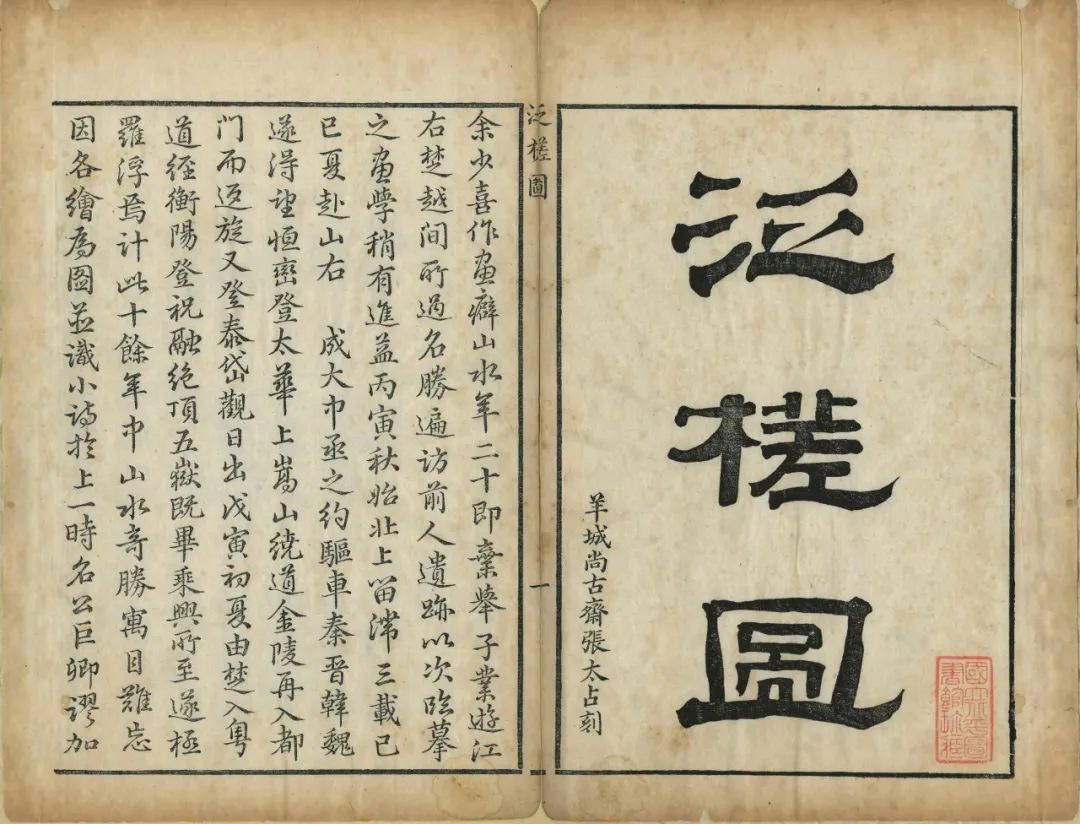 泛槎圖
羊城尚古齋張太占刻
國立北平圖
書館珍藏
泛槎圖
一
余少喜作畫癖山水年二十即棄舉子業遊江
右楚越間所過名勝遍訪前人遺跡以次臨摹
之畫學稍有進益丙寅秋始北上留滯三載己
巳夏赴山右 成大中丞之約驅車秦晉韓魏
遂得望恒巒登太華上嵩山繞道金陵再入都
門而返旋又登泰岱觀日出戊寅初夏由楚入粵
道經衡陽登祝融絶頂五嶽既畢乘興所至遂極
羅浮焉計此十餘年中山水奇勝寓目難忘
因各繪為圖並識小詩於上一時名公巨卿謬加